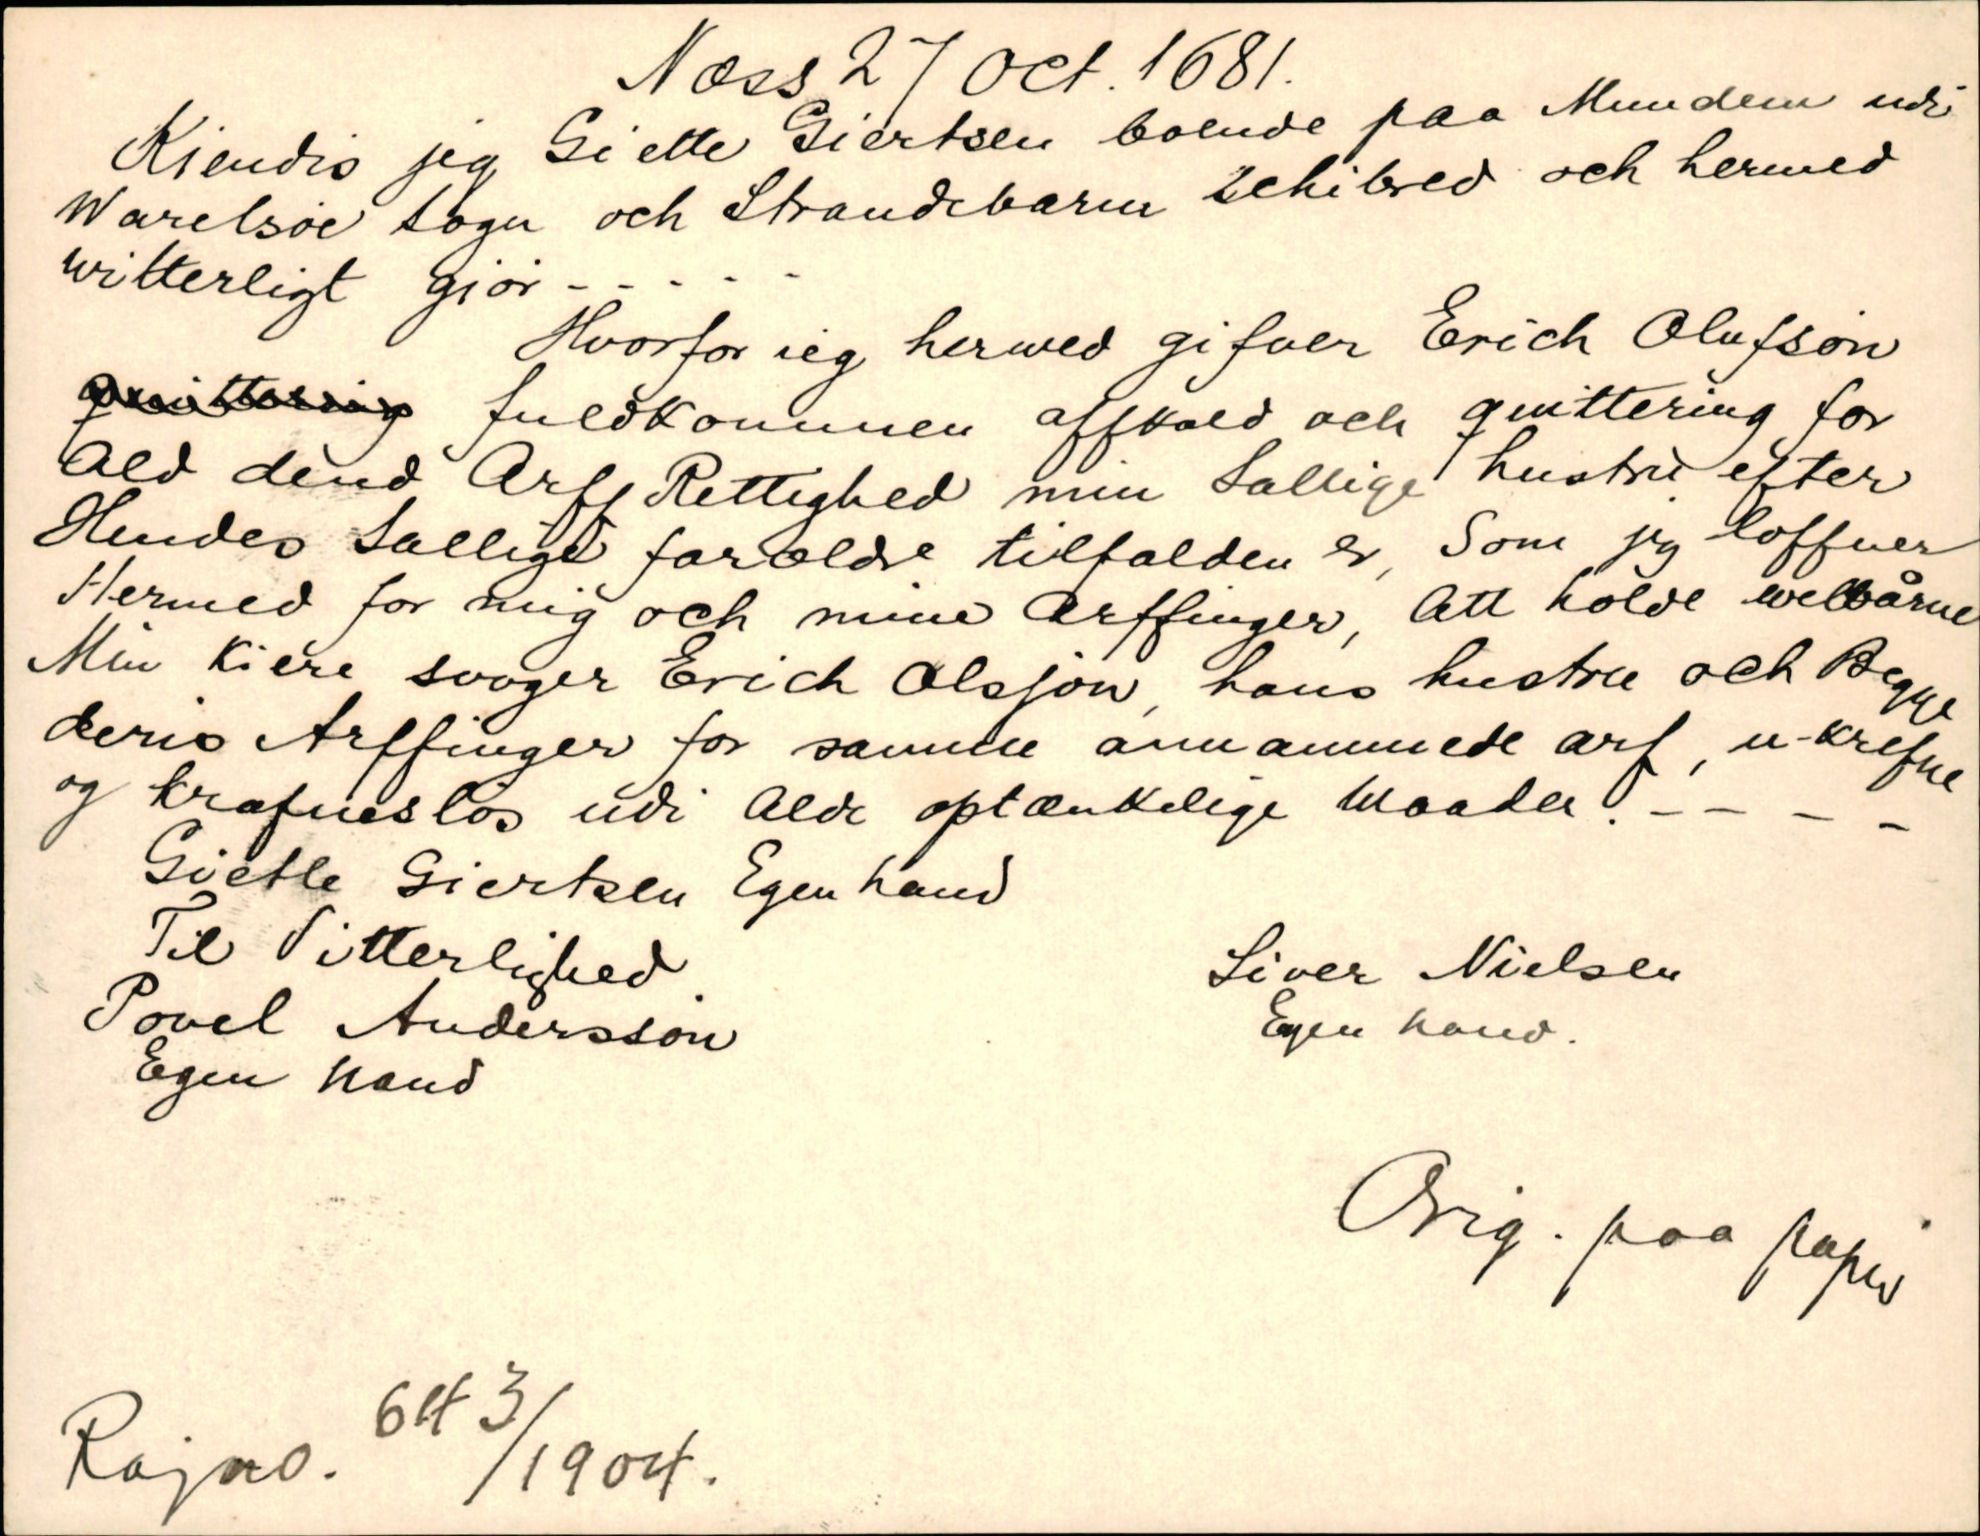 Næss 27 Oct. 1681.
Kiendis jeg Giette Giertsen boende paa Mundem udi
Warelsøe sogn och Strandebarm Schibred och hermed
witterligt giør - - - - -
Hvorfor ieg hermed gifuer Erich Olufsøn
quittering fuldkommen affkald och quittering for
Ald dend Arff Rettighed min Sallige hustru efter
Hendes Sallige forældre tilfalden er, Som jeg loffuer
Hermed for mig och mine Arffinger, Att holde welbårne
Min Kiere svoger Erich Olsjøn, hans hustru och Begge
deris Arffinger for samme annammede arf, u-krefue
og krafueslös udi Alde optænkelige Maader. - - - -
Giette Giertsen Egen hand
Til Vitterlighed
Povel Anderssøn
Egen Hand
Siver Nielsen
Egen Hand.
Orig. paa papir
Rajno. 643/1904.